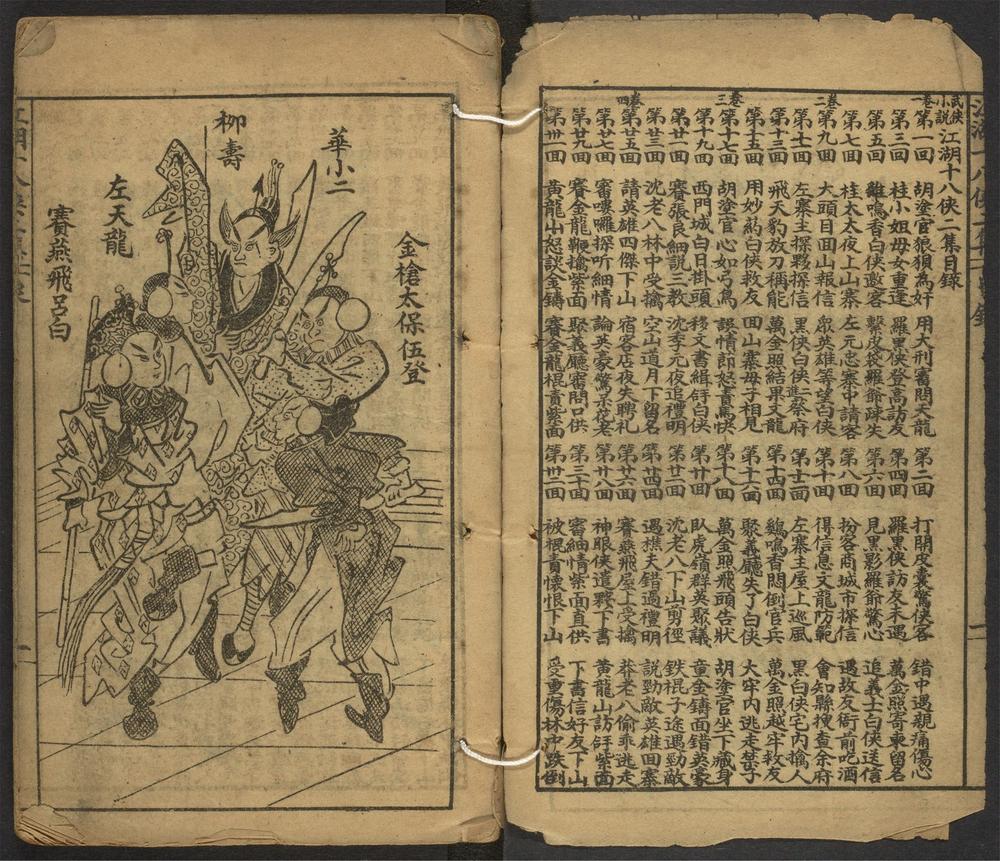 武俠小說江湖十八俠二集目錄
卷一
第一回 胡塗官狼狽為奸 用大刑審問天龍 第二回 打開皮囊驚俠客 錯中遇親痛傷心
第三回 桂小姐母女重逢 羅黑俠登高訪友 第四回 羅黑俠訪友未遇 萬金照寄柬留名
第五回 雞鳴香白俠邀客 繫皮袋羅爺疎失 第六回 見黑影羅爺驚心 追義士白俠送信
第七回 桂太太夜上山寨 左元忠寨中請客 第八回 扮客商城市探信 遇故友衙前吃酒
卷二
第九回 大頭目回山報信 眾英雄等望白俠 第十回 得信息文龍防範 會知縣搜查余府
第十一回 左寨主探夥探信 黑俠白俠進蔡府 第十二回 左寨主屋上巡風 黑白俠宅內擒人
第十三回 飛天豹放刀稱能 萬金照結果文龍 第十四回 雞鳴香悶倒官兵 萬金照越牢救友
第十五回 用妙葯白俠救友 回山寨母子相見 第十六回 聚義廳失了白俠 大牢內逃走禁子
卷三
第十七回 胡塗官心如弓馬 誤情郎怒責馬快 第十八回 萬金照飛頭告狀 胡塗官坐下藏身
第十九回 西門城白日掛頭 移文書緝拜白俠 第廿回 臥虎嶺群英聚議 童金鑄面錯英豪
第廿一回 賽張良細說三教 沈李元夜追禮明 第廿二回 沈老八下山剪徑 鉄棍子途遇勁敵
第廿三回 沈老八林中受擒 空山道月下留名 第廿四回 遇樵夫錯過禮明 說勁敵英雄回寨
卷四
第廿五回 請英雄四傑下山 宿客店夜失聘礼 第廿六回 賽燕飛屋上受擒 莽老八偷乖逃走
第廿七回 審嘍囉探听細情 論英豪驚呆花老 第廿八回 神眼俠遣夥下書 黃龍山訪拜紫面
第廿九回 賽金龍鞭擒紫面 聚義廳審問口供 第三十回 審細情紫面直供 下書信好友下山
第卅一回 黃龍山怒誤金鑄 賽金龍棍責紫面 第卅二回 被棍責懷恨下山 受重傷林中跌倒
一
華小二
金槍太保伍登
柳壽
左天龍
賽燕飛呂白
一